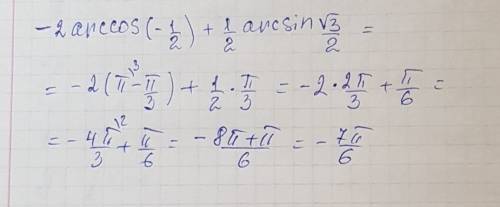 -2 arccos(-1/2) + 1/2 arcsin √3/2 =
= -2(π\3 - π/3) + 1/2 · π/3 = -2 · 2π/3 + π/6 =
= -4π/3\2 + π/6 = -8π+π/6 = -7π/6